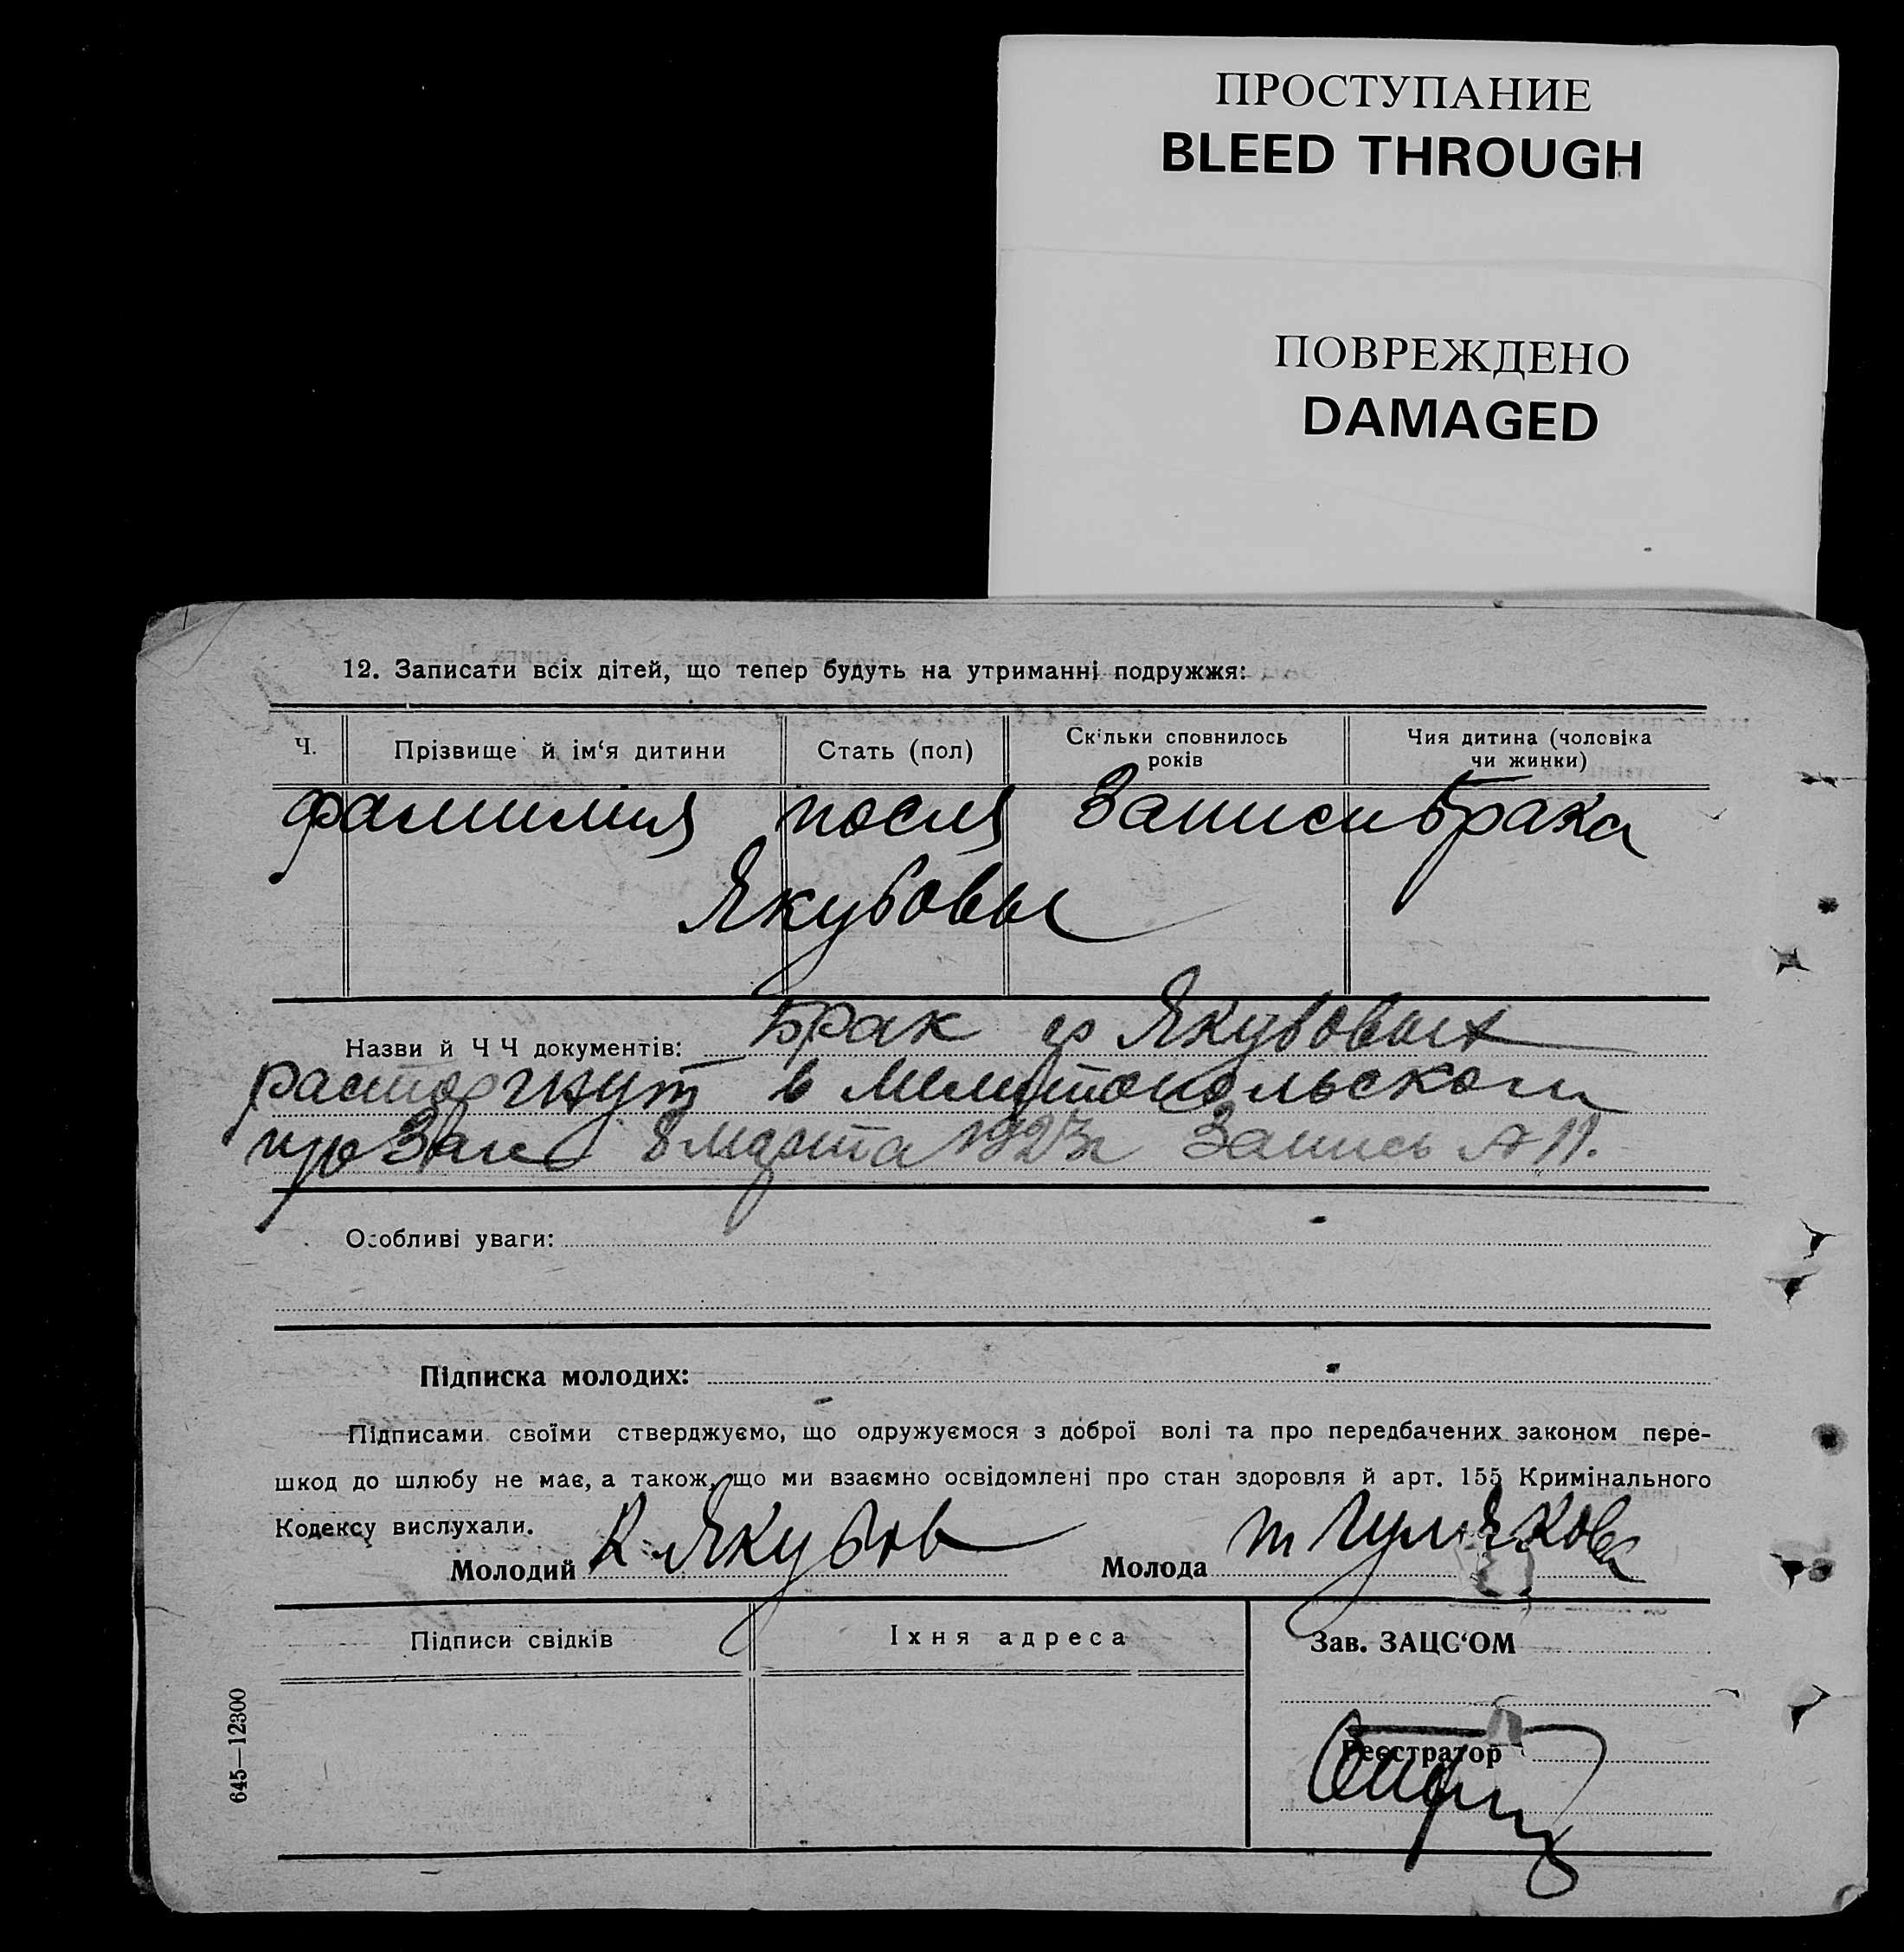 ПРОСТУПАНИЕ
BLEED THROUGH
ПОВРЕЖДЕНО
DAMAGED
12. Записати всіх дітей, що тепер будуть на утриманні подружжя:
Ч. Прізвище й ім‘я дитини Стать (пол) Скільки сповнилось років Чия дитина (чоловіка чи жинки)
фамилия после Записи брака
Якубовы
Назви й Ч Ч документів: Брак Якубовых
расторгнут в Мелитопольском
8 марта 1923г Запись № 11.
Особливі уваги:
Підписка молодих:
Підписами своїми стверджуємо, що одружуємося з доброї волі та про передбачених законом пере-
шкод до шлюбу не має, а також, що ми взаємно освідомлені про стан здоровля й арт. 155 Кримінального
Кодексу вислухали.
Молодий К Якубов Молода т Гулякова
Підписи свідків Іхня адреса Зав. ЗАЦС‘ОМ
Реєстратор
645—12300